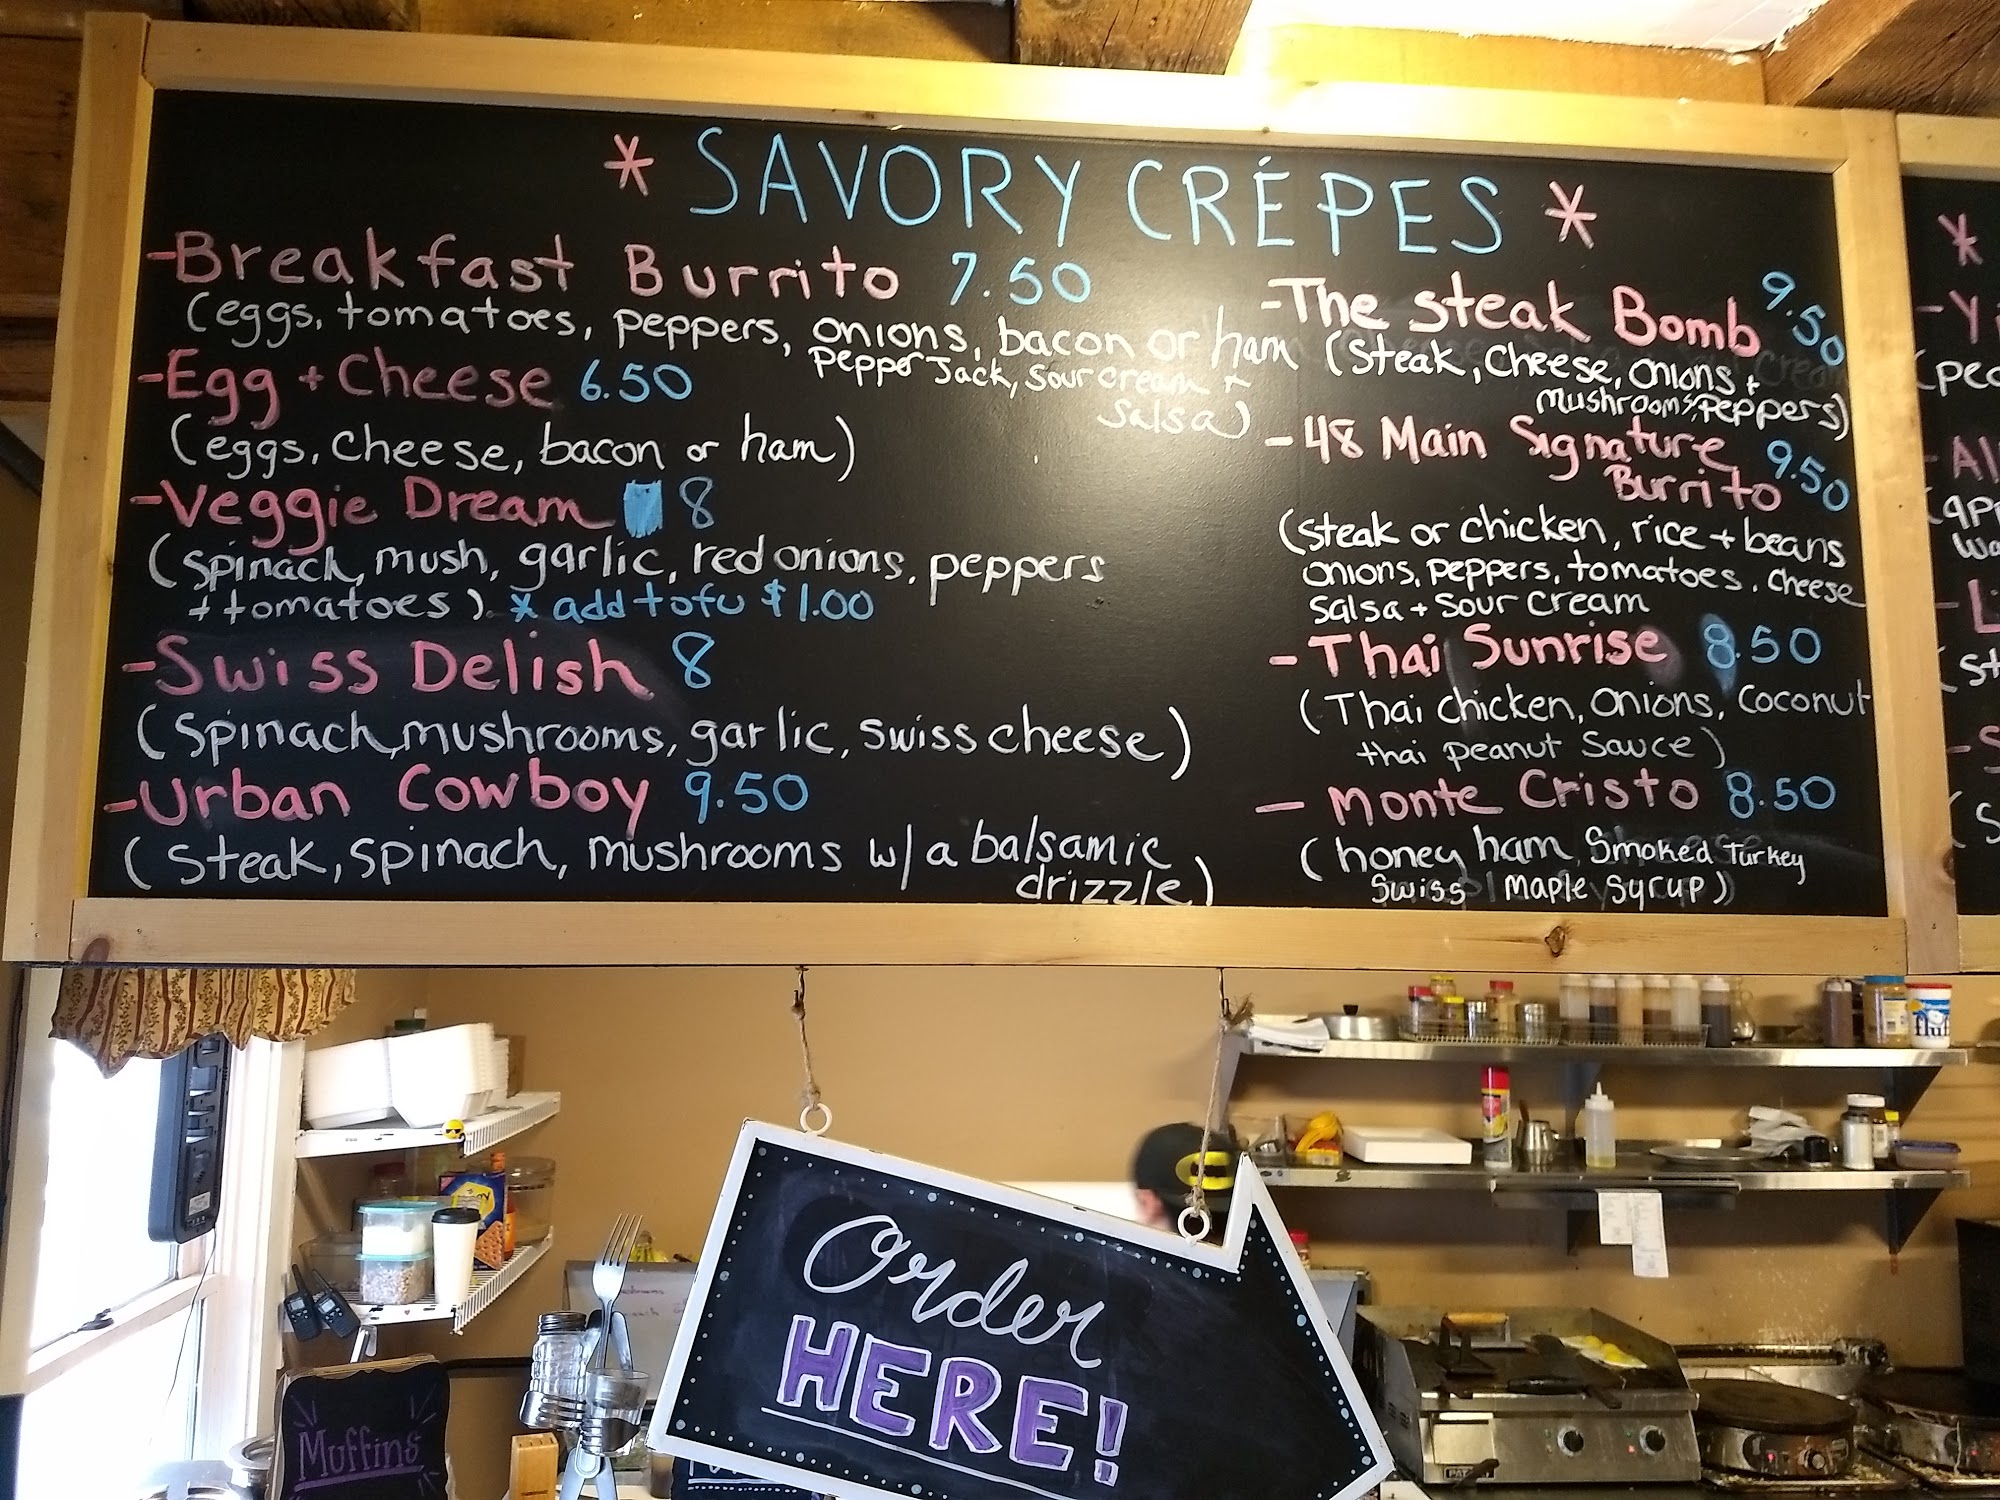 * SAVORY CRÉPES *
-Breakfast Burrito 7.50
(eggs, tomatoes, peppers, onions, bacon or ham
Pepper Jack, Sour cream +
Salsa)
-Egg + Cheese 6.50
(eggs, cheese, bacon or ham)
-Veggie Dream 8
(spinach, mush, garlic, red onions, peppers
+ tomatoes) * add tofu $1.00
-Swiss Delish 8
(Spinach, mushrooms, garlic, swiss cheese)
-Urban Cowboy 9.50
(Steak, spinach, mushrooms w/ a balsamic
drizzle)
-The Steak Bomb 9.50
(Steak, Cheese, Onions +
Mushrooms, Peppers)
-48 Main Signature
Burrito 9.50
(Steak or chicken, rice + beans
onions, peppers, tomatoes, cheese
Salsa + Sour cream
-Thai Sunrise 8.50
(Thai chicken, onions, coconut
thai peanut sauce)
- Monte Cristo 8.50
(honey ham, Smoked Turkey
Swiss Maple Syrup)
order
HERE!
Muffins